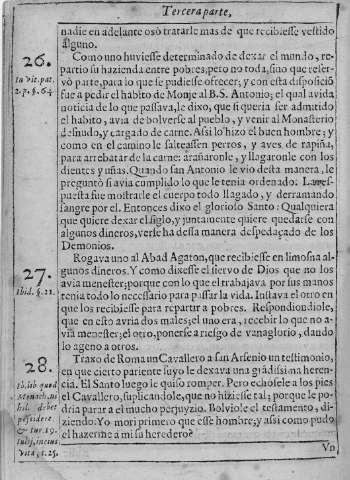 Tercera parte,
nadie en adelante osò tratarle mas de que recibiesse vestido
alguno.
26.
In vit. pat.
2. p. §. 64
Como uno huviesse determinado de dexar el mundo, re-
partio su hazienda entre pobres, pero no toda, sino que reser-
vò parte, para lo que se pudiesse ofrecer; y con esta disposiciõ
fue a pedir el hàbito de Monje al B. S. Antonio; el qual avida
noticia de lo que passava, le dixo, que si queria ser admitido
el habito, avia de bolverse al pueblo, y venir al Monasterio
desnudo, y cargado de carne. Assi lo hizo el buen hombre; y
como en el camino le salteassen perros, y aves de rapiña,
para arrebatar de la carne: arañaronle, y llagaronle con los
dientes y uñas. Quando san Antonio le vio desta manera, le
preguntò si avia cumplido lo que le tenia ordenado: La res-
puesta fue mostrarle el cuerpo todo llagado, y derramando
sangre por el. Entonces dixo el glorioso Santo: Qualquiera
que quiere dexar el siglo, y juntamente quiere quedarse con
algunos dineros, verse ha dessa manera despedaçado de los
Demonios.
27.
Ibid. §. 21.
Rogava uno al Abad Agaton, que recibiesse en limosna al-
gunos dineros. Y como dixesse el siervo de Dios que no los
avia menester; porque con lo que el trabajava por sus manos
tenia todo lo necessario para passar la vida. Instava el otro en
que los recibiesse para repartir a pobres. Respondiendole,
que en esto avria dos males; el uno era, recebir lo que no a-
via menester; el otro, ponerse a riesgo de vanaglorio, dando
lo ageno a otros.
28.
Traxo de Roma un Cavallero a san Arsenio un testimonio,
en que cierto pariente suyo le dexava una grãdissima heren-
cia. El Santo luego le quiso romper. Pero echòsele a los pies
el Cavallero, suplicandole, que no hiziesse tal; porque le po-
dria parar a el mucho perjuyzio. Bolviole el testamento, di-
ziendo: Yo mori primero que esse hombre; y assi como pudo
el hazerme a mi su heredero?
Ib. lib. quod
Monach. ni-
hil debet
possidere.
& tur. 19.
vita, §. 25.
Un